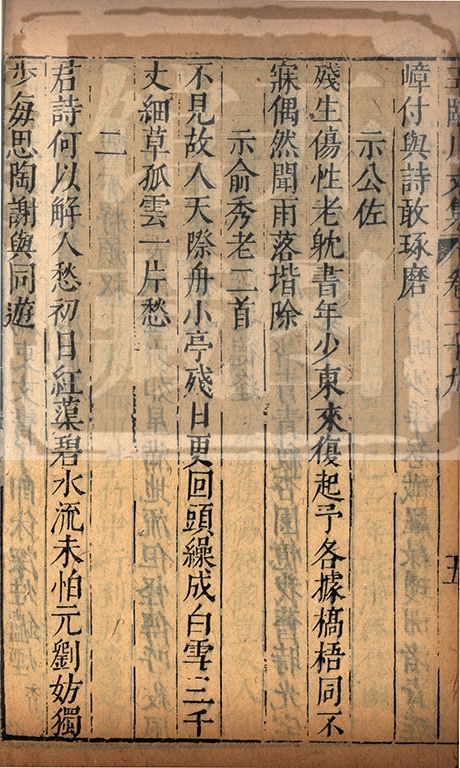 王臨川文集 卷二十九 五
嶂付與詩敢琢磨
示公佐
殘生傷性老躭書年少東來復起予各據槁梧同不
寐偶然聞雨落堦除
示俞秀老二首
不見故人天際舟小亭殘日更回頭繰成白雪三千
丈細草孤雲一片愁
二
君詩何以解人愁初日紅蕖碧水流未怕元劉妨獨
步每思陶謝與同遊